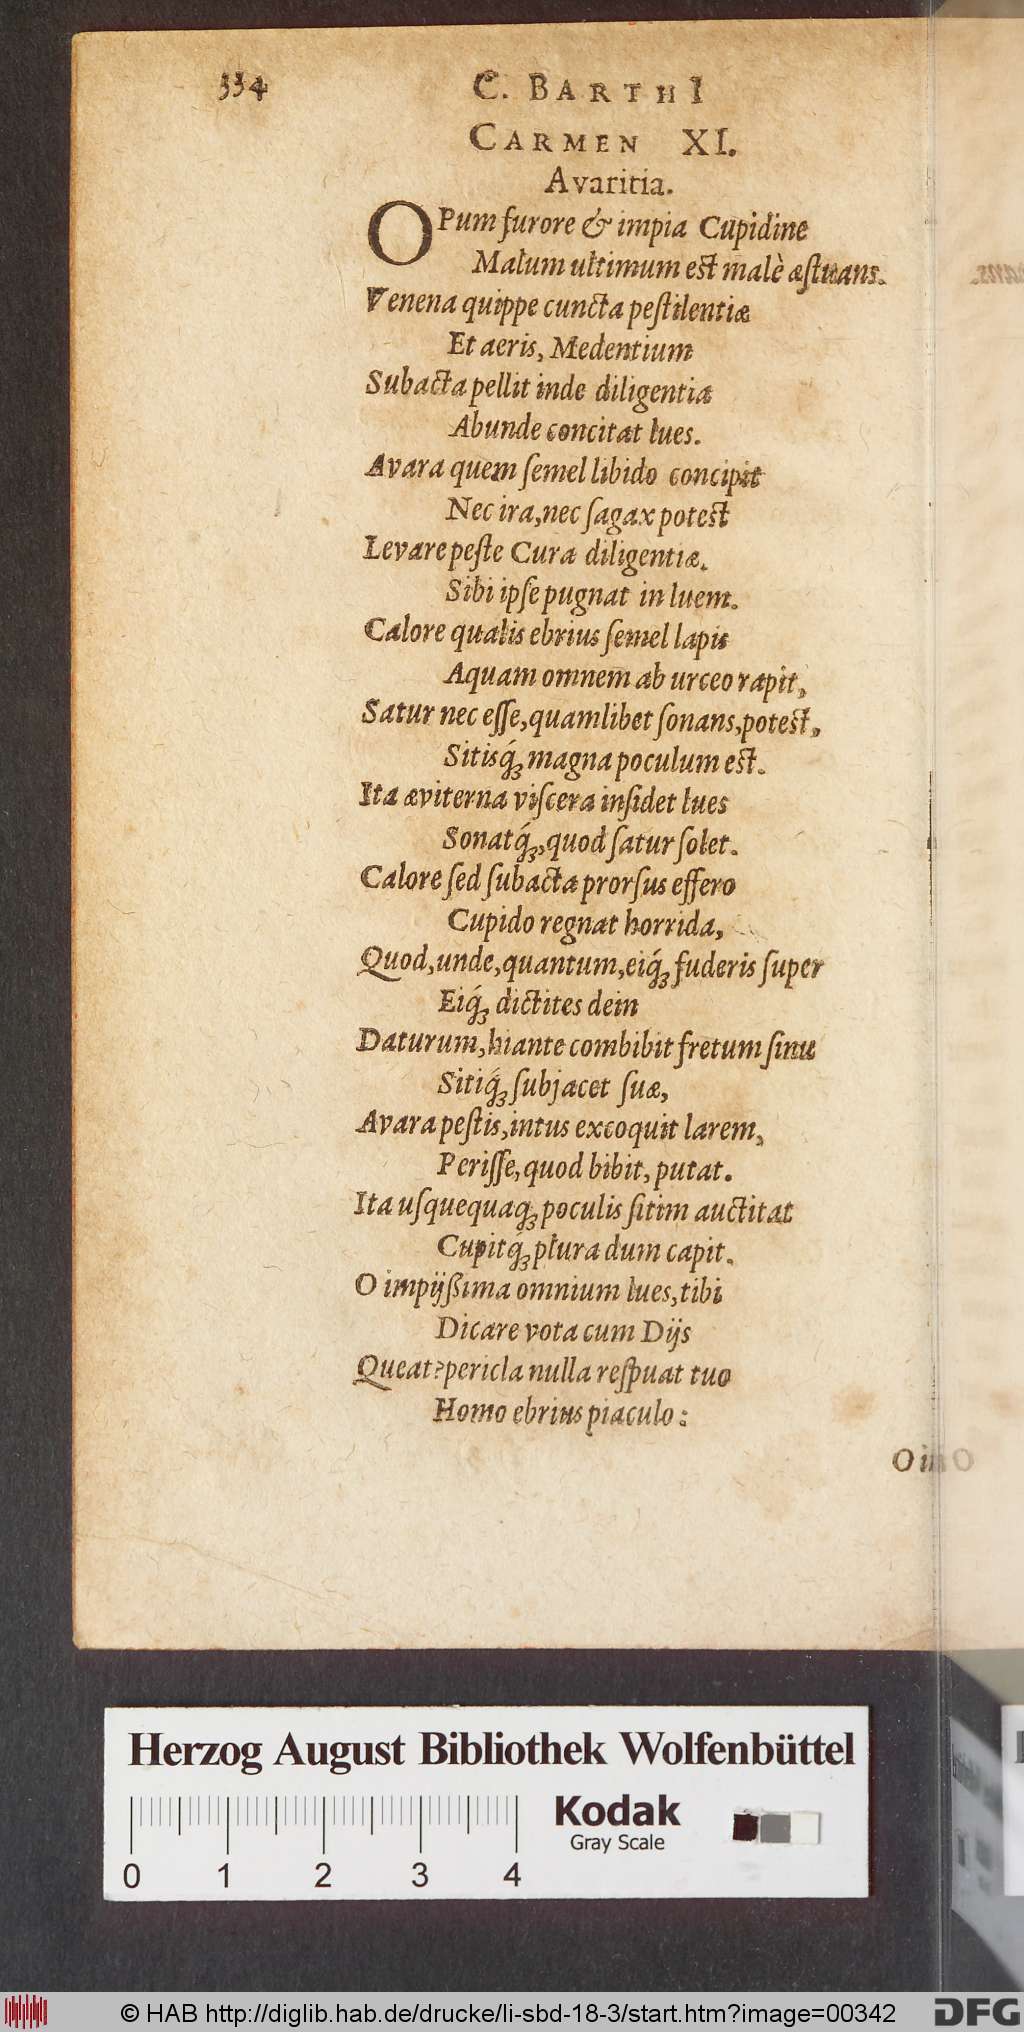 334 C. BARTHI
CARMEN XI.
Avaritia.
OPum furore & impia Cupidine
Malum ultimum est malè æstuans.
Venena quippe cuncta pestilentiæ
Et aeris, Medentium
Subacta pellit inde diligentia
Abunde concitat lues.
Avara quem semel libido concipit
Nec ira, nec sagax potest
Levare peste Cura diligentiæ.
Sibi ipse pugnat in luem.
Calore qualis ebrius semel lapis
Aquam omnem ab urceo rapit,
Satur nec esse, quamlibet sonans, potest,
Sitisq́; magna poculum est.
Ita æviterna viscera insidet lues
Sonatq́;, quod satur solet.
Calore sed subacta prorsus effero
Cupido regnat horrida,
Quod, unde, quantum, eiq́; fuderis super
Eiq́; dictites dein
Daturum, hiante combibit fretum sinu
Sitiq́; subjacet suæ,
Avara pestis, intus excoquit larem,
Perisse, quod bibit, putat.
Ita usquequaq; poculis sitim auctitat
Cupitq́; plura dum capit.
O impijßima omnium lues, tibi
Dicare vota cum Dijs
Queat? pericla nulla respuat tuo
Homo ebrius piaculo:
O in
Herzog August Bibliothek Wolfenbüttel
Kodak
Gray Scale
0 1 2 3 4
© HAB http://diglib.hab.de/drucke/li-sbd-18-3/start.htm?image=00342
DFG